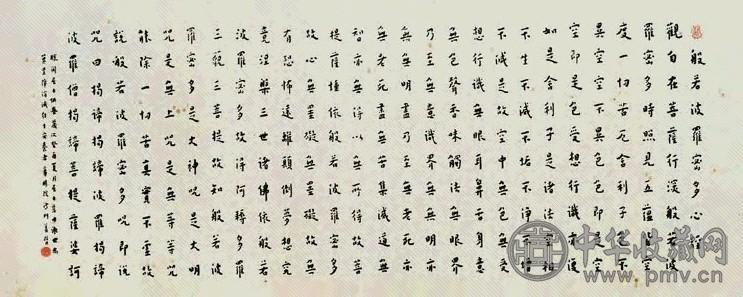 般若波羅密多心經
觀自在菩薩行深般若波
羅密多時照見五蘊皆空
度一切苦厄舍利子色不
異空空不異色色即是空
空即是色受想行識亦復
如是舍利子是諸法空相
不生不滅不垢不淨不增
不減是故空中無色無受
想行識無眼耳鼻舌身意
無色聲香味觸法無眼界
乃至無意識界無無明亦
無無明盡乃至無老死亦
無老死盡無苦集滅道無
智亦無得以無所得故菩
提薩埵依般若波羅密多
故心無罣礙無罣礙故無
有恐怖遠離顛倒夢想究
竟涅槃三世諸佛依般若
波羅密多故得阿耨多羅
三藐三菩提故知般若波
羅密多是大神咒是大明
咒是無上咒是無等等咒
能除一切苦真實不虛故
說般若波羅密多咒即說
咒曰揭諦揭諦波羅揭諦
波羅僧揭諦菩提薩婆訶
中华收藏网
www.pmv.cn